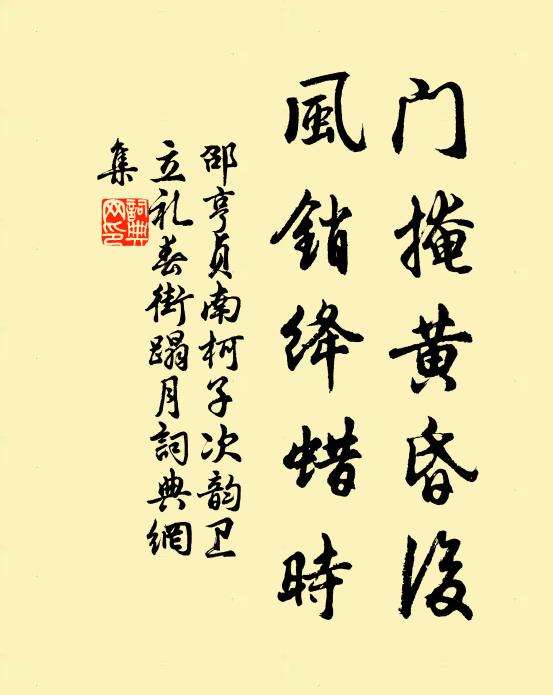 门掩黄昏後
風销绛蜡時
邵亨贞南柯子次韵卫
立礼春街蹋月詞典網
集
詞典
网印